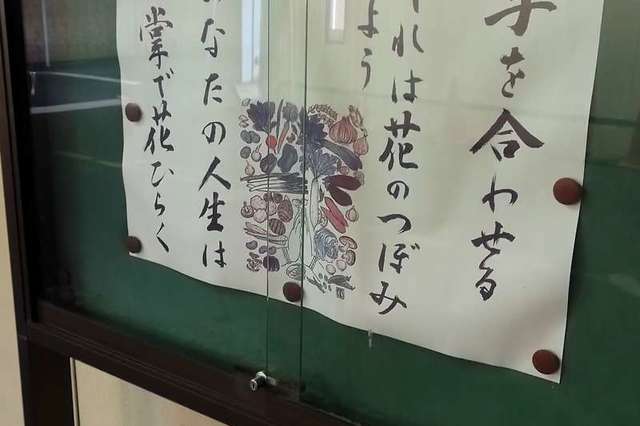 手を合わせる
れは花のつぼみ
よう
なたの人生は
掌で花ひらく